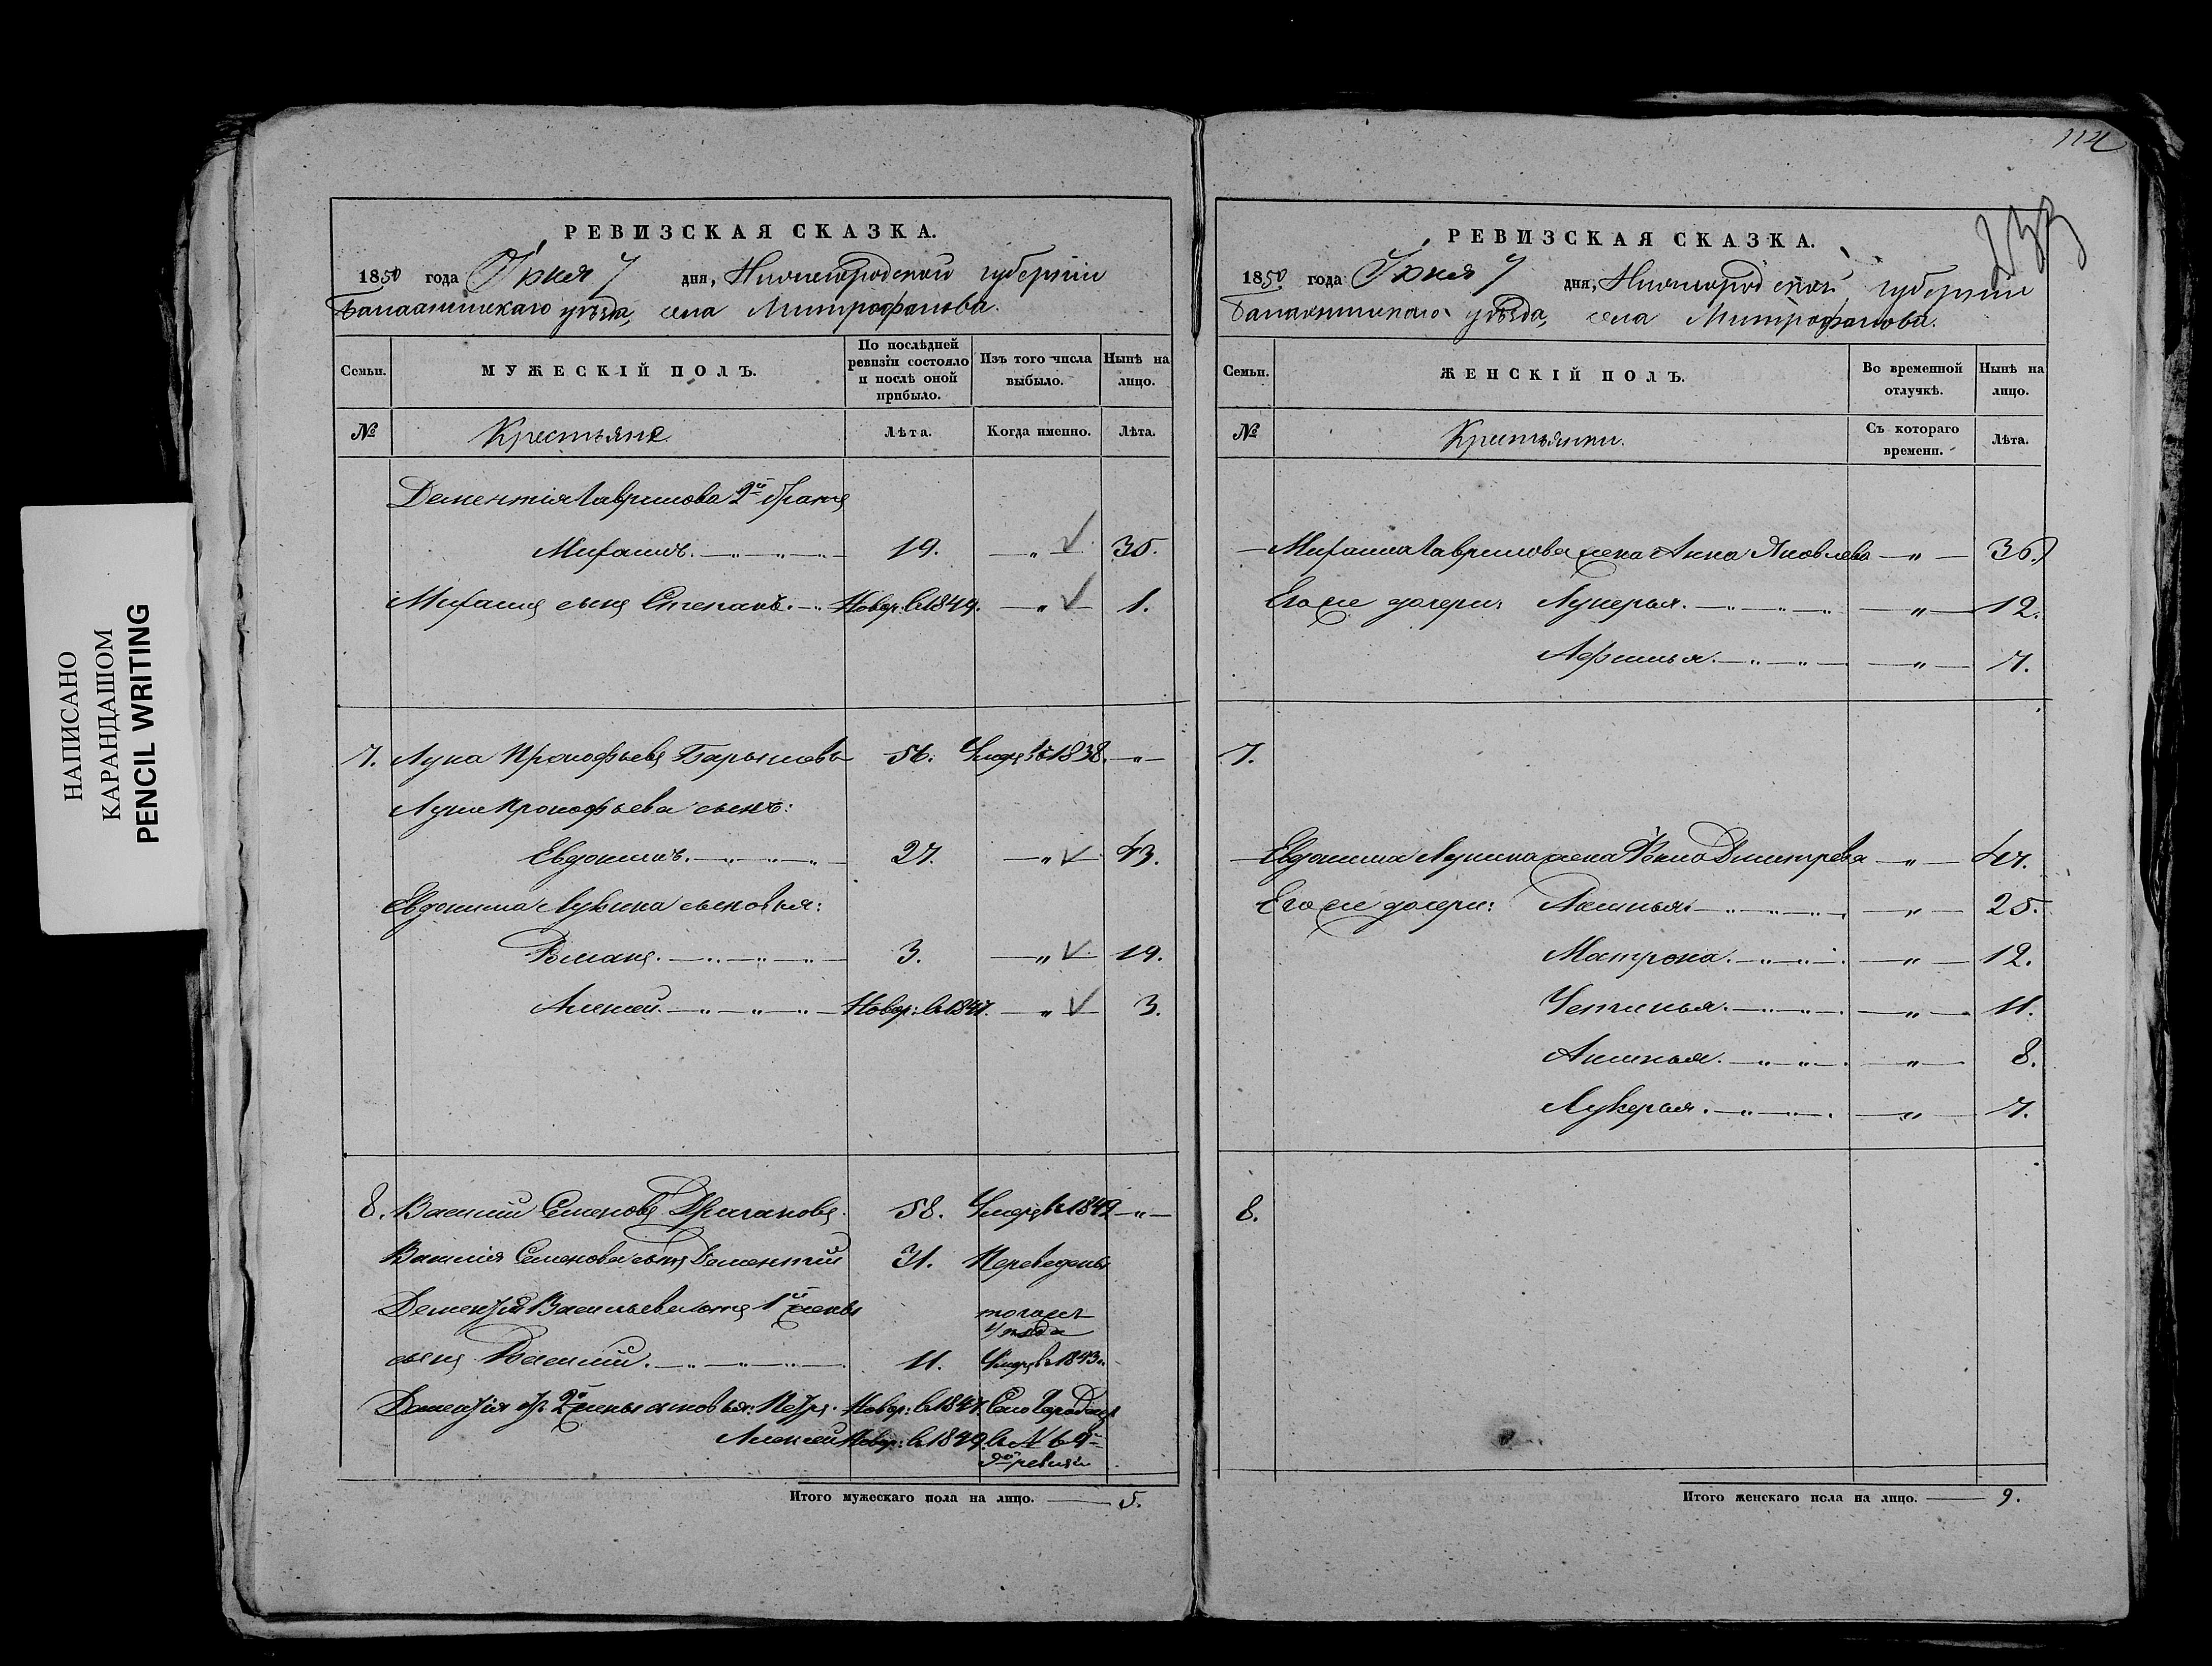 НАПИСАНО
КАРАНДАШОМ
PENCIL WRITING
РЕВИЗСКАЯ СКАЗКА.
1850 года Іюня 7 дня, Нижегородской губерніи
Балахнинскаго уѣзда, села Митрофанова.
Семьи. МУЖЕСКІЙ ПОЛЪ. По послѣдней ревизіи состояло и послѣ оной прибыло. Изъ того числа выбыло. Нынѣ на лицо.
№ Крестьяне Лѣта. Когда именно. Лѣта.
Дементія Гаврилова 2й братъ
Михаилъ. 19. " 35.
Михаила сынъ Степанъ. Новор: въ 1849. " 1.
7. Лука Прокофьевъ Барышовъ 56. Умеръ въ 1838. "
Луки Прокофьева сынъ:
Евдокимъ. 27. " 43.
Евдокима Лукина сыновья:
3. " 19.
Алексей. Новор: въ 1847. " 3.
8. Василий Семеновъ 58. Умеръ въ 1849 "
Василія Семенова сынъ Дементий 31. Переведены
Дементія Васильева отъ 1й жены тогожъ
уѣзда
сынъ Василий. 11. Умеръ въ 1843.
Дементія отъ 2й жены сыновья: Петръ. Новор: въ 1847. Село Городецъ
Алексей Новор: въ 1849 въ №
ревизіи
Итого мужескаго пола на лицо. 5.
114
РЕВИЗСКАЯ СКАЗКА.
1850 года Іюня 7 дня, Нижегородской губерніи
Балахнинскаго уѣзда, села Митрофанова.
Семьи. ЖЕНСКІЙ ПОЛЪ. Во временной отлучкѣ. Нынѣ на лицо.
№ Крестьянки. Съ котораго времени. Лѣта.
Михаила Гаврилова жена Анна Яковлева " 36.
Егоже дочери: Лукерья. " 12.
Афимья. " 7.
7.
Евдокима Лукина жена Дмитрева " 44.
Егоже дочери: " 25.
Матрона. " 12.
Устинья. " 11.
Аксинья. " 8.
Лукерья. " 7.
8.
Итого женскаго пола на лицо. 9.